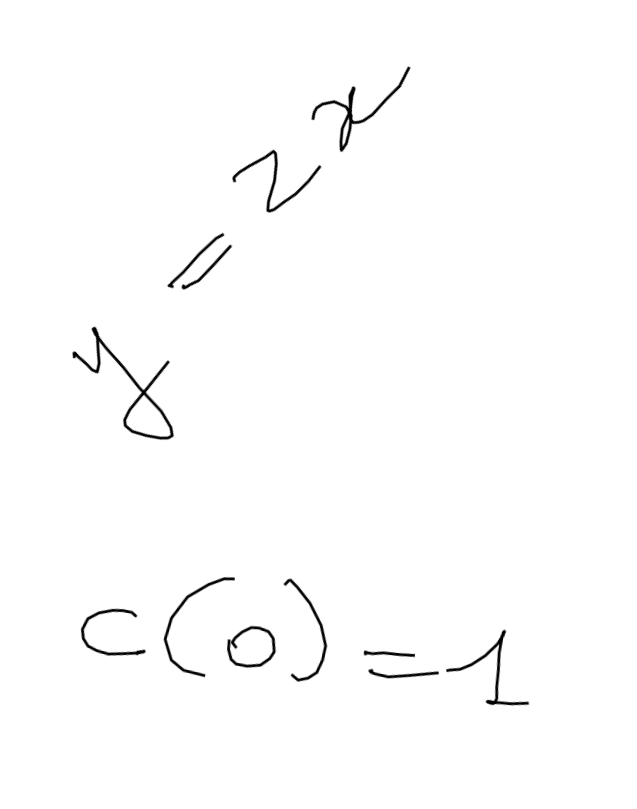 y = 2x
c(0) = 1